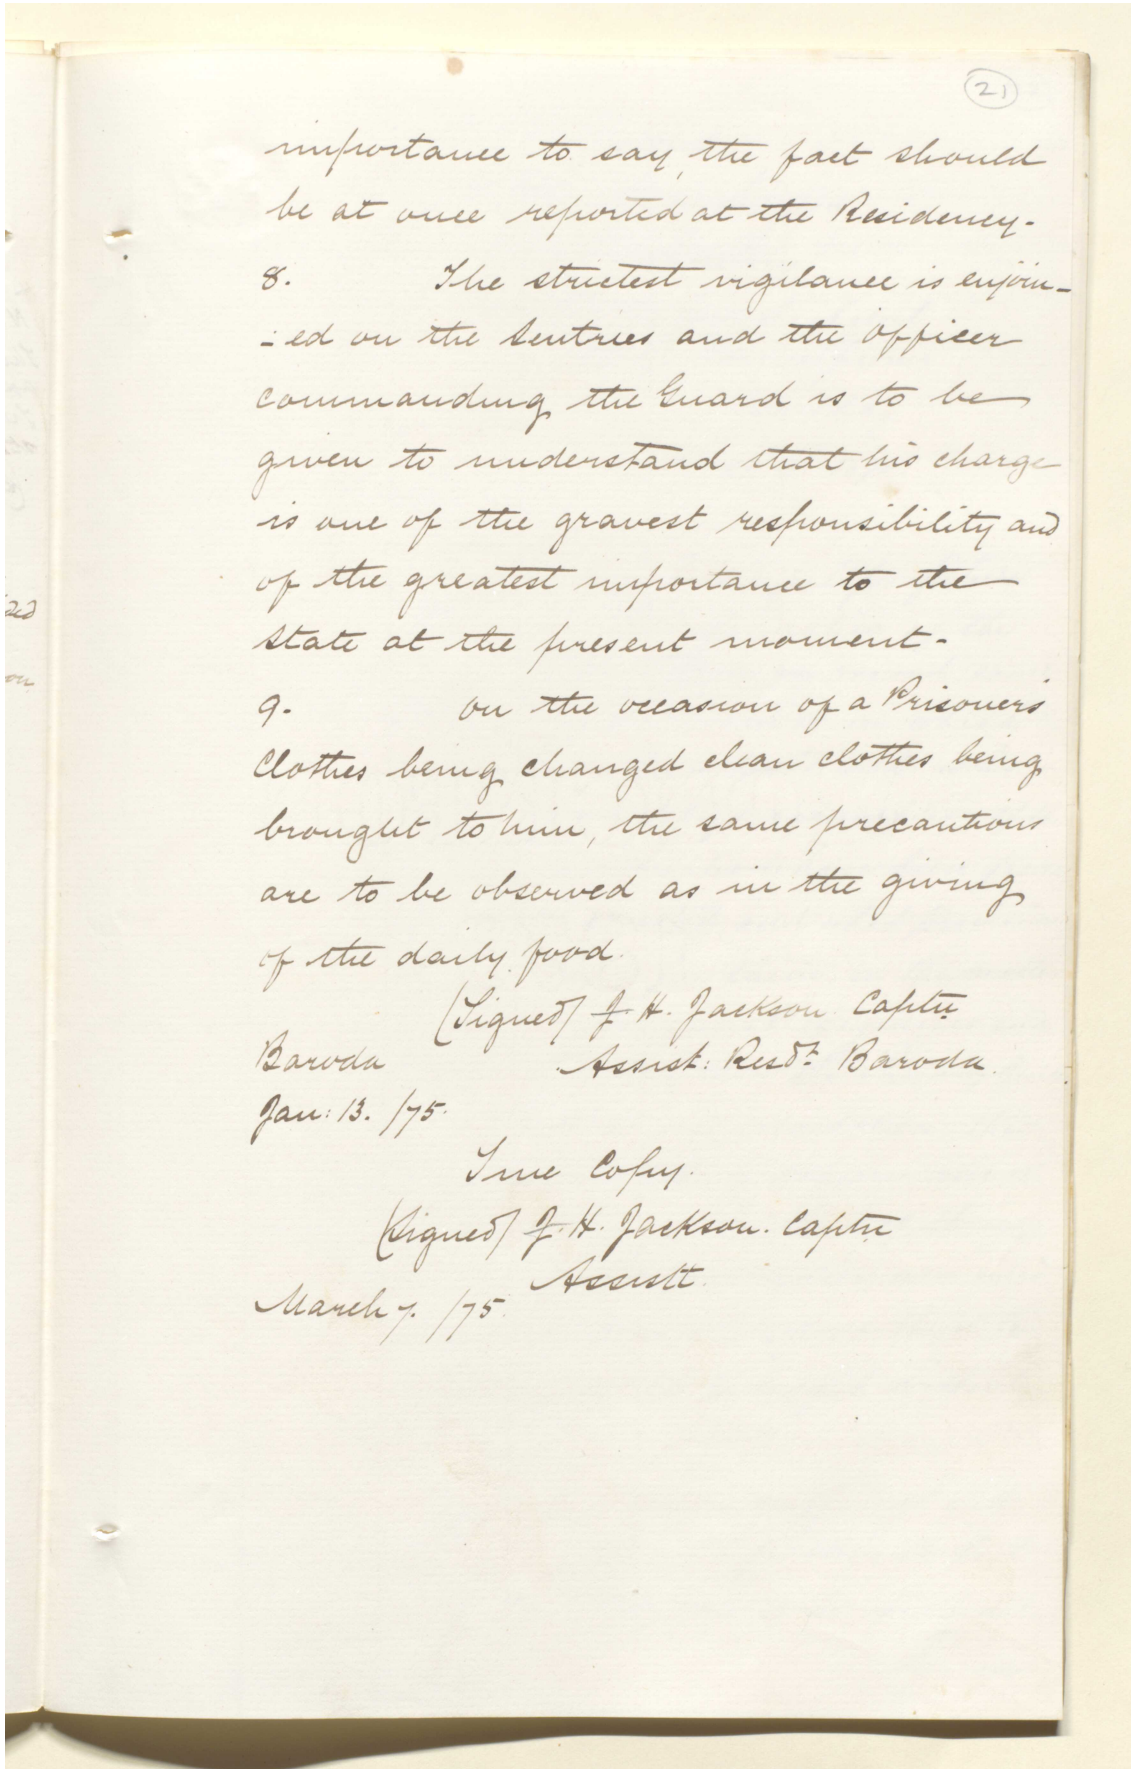 21
importance to say, the fact should
be at once reported at the Residency-
8. The strictest vigilance is enjoin-
-ed on the Sentries and the Officer
Commanding the Guard is to be
given to understand that his charge
is one of the gravest responsibility and
of the greatest importance to the
State at the present moment-
9. On the occasion of a Prisoner's
Clothes being changed clean clothes being
brought to him, the same precautions
are to be observed as in the giving
of the daily food.
(Signed) J. H. Jackson Captn
Baroda Assist: Resdt. Baroda.
Jan: 13. /75.
True Copy.
(Signed) J. H. Jackson. Captn
Assistt.
March 7. /75.